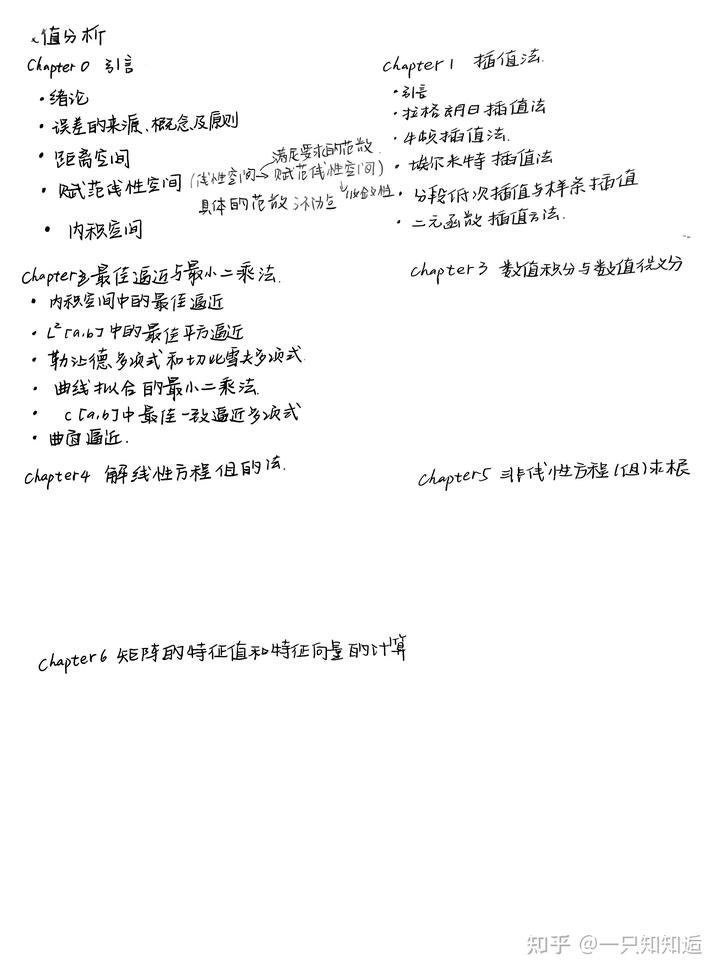 值分析
Chapter 0 引言
• 绪论
• 误差的来源、概念及原则
• 距离空间
• 赋范线性空间 (线性空间→赋范线性空间)
满足要求的范数
具体的范数 不动点
• 内积空间
Chapter 1 插值法.
• 引言
• 拉格朗日插值法
• 牛顿插值法.
• 埃尔米特插值法
• 分段低次插值与样条插值
• 二元函数插值方法.
Chapter 2 最佳逼近与最小二乘法.
• 内积空间中的最佳逼近
• L²[a,b]中的最佳平方逼近
• 勒让德多项式和切比雪夫多项式.
• 曲线拟合的最小二乘法.
• C[a,b]中最佳一致逼近多项式
• 曲面逼近.
Chapter 3 数值积分与数值微分
Chapter 4 解线性方程组的法.
Chapter 5 非线性方程(组)求根
Chapter 6 矩阵的特征值和特征向量的计算
知乎 @一只知知逅